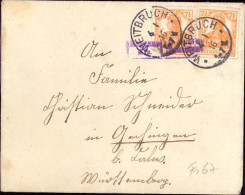 WEITBRUCH
WEITBRUCH
An
Familie
Christian Schneider
in Gechingen
b. Calw
Württemberg.